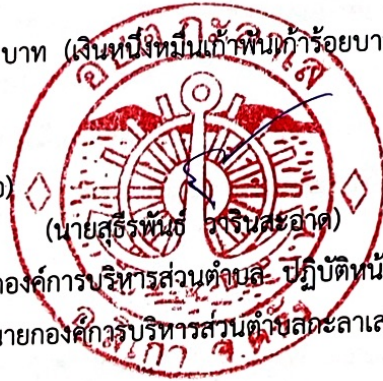 บาท (เงินหนึ่งหมื่นเก้าพันเก้าร้อยบา
อบต.กะลาเส
(นายสุธีรพันธ์ วารินสะอาด)
องค์การบริหารส่วนตำบล ปฏิบัติหน้
นายกองค์การบริหารส่วนตำบลกะลาเส
อ.สิเกา จ.ตรัง